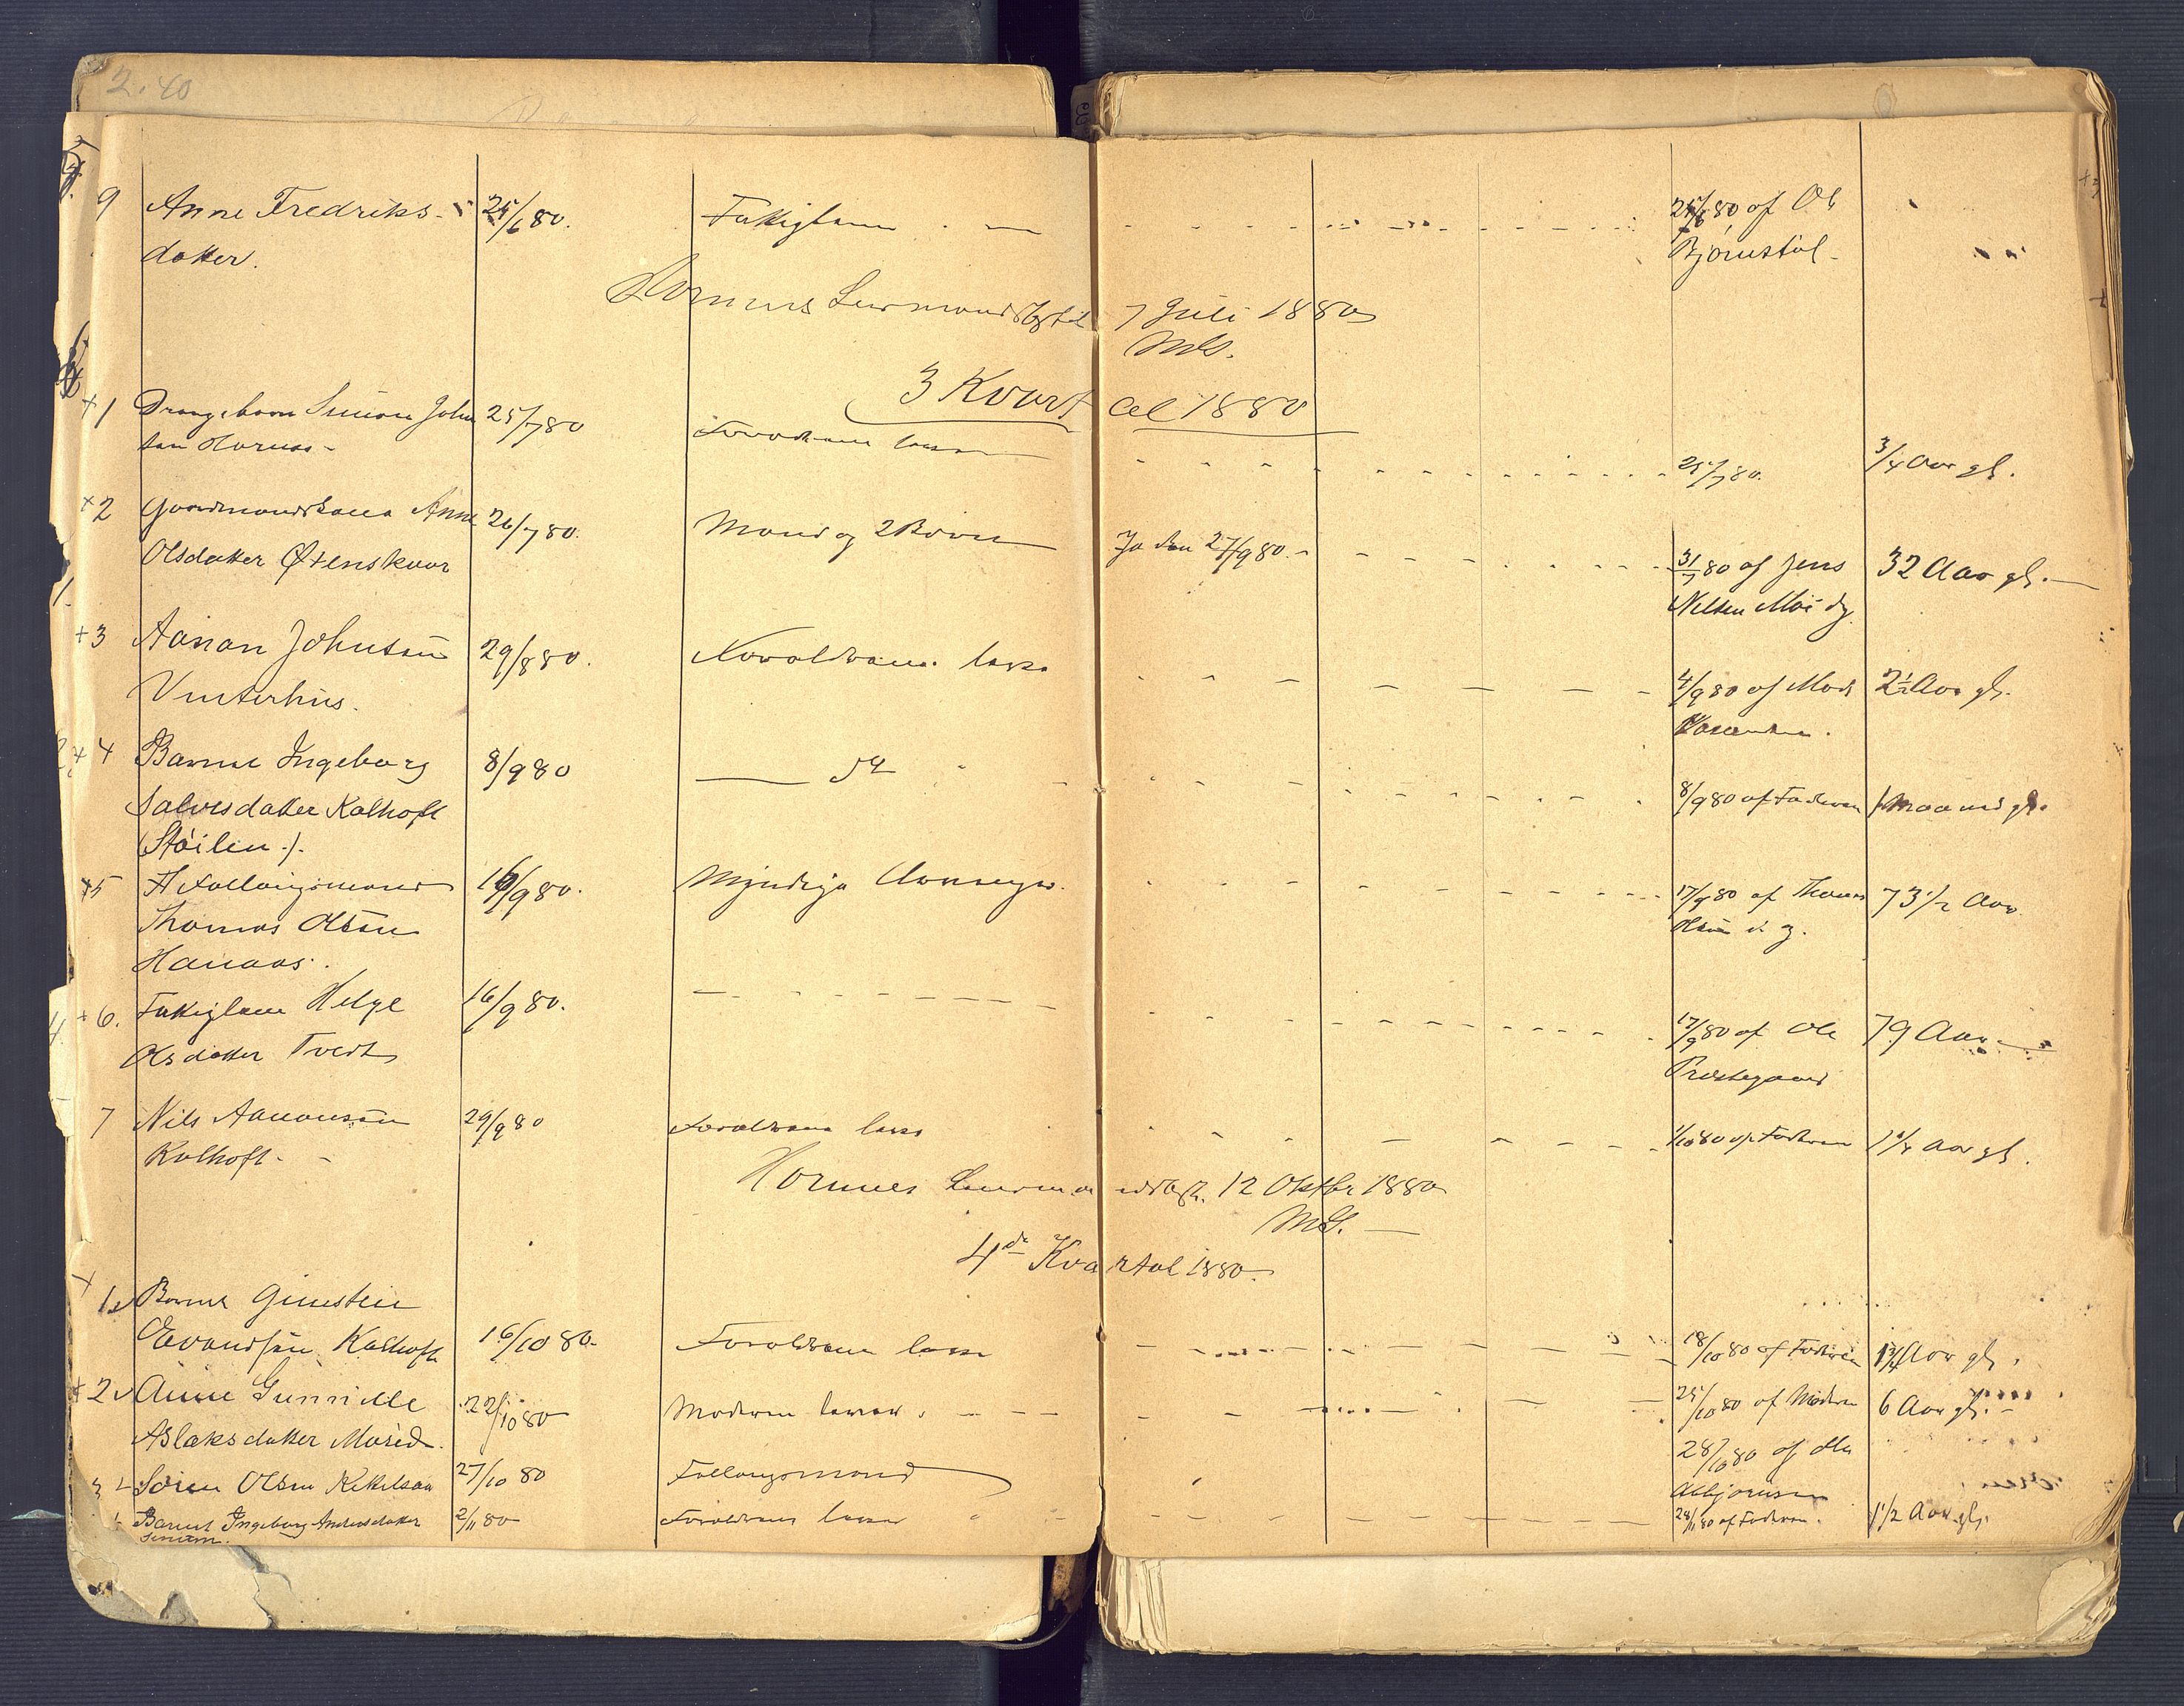 2.40
9 Anne Fredriks- 25/6 80. Fattiglem 25/6 80 af Ole
datter. Bjørnstøl
Hornnes Lensmandsbest. 7 Juli 1880
3 Kvartal 1880
+1 Drengebarn Simon John 25/7 80 Forældrene lever
sen Hornes 25/7 80. 3/4 Aar gl.
+2 Gaardmandskone Anne 26/7 80. Mand og 2 Børn Ja den 27/9 80.
Olsdatter Øtenskaar 31/7 80 af Jens 32 Aar gl.
Nilsen Moi
+3 Aanon Johnsen 29/8 80. Forældrene leve
Vinterhus. 4/9 80 af Mads 2½ Aar gl.
+4 Barnet Ingeborg 8/9 80
Salvesdatter Kalhoft 8/9 80 af Faderen 1 Maaned gl.
(Støilen).
+5 Føllaugsmand 16/9 80. Myndige Arvinger.
Thomas Olsen 17/9 80 af Thomas 73 1/2 Aar
Hanaas. Olsen
+6. Fattiglem Helge 16/9 80.
Olsdatter Tveit 17/9 80 af Ole 79 Aar
Præstegaard
7 Nils Aanonsen 29/9 80 Forældrene leve
Kalhoft 1/10 80 af Faderen 1 1/4 Aar gl.
Hornnes Lensmandsbest. 12 Oktbr 1880
4de Kvartal 1880.
1 Barnet Gunstein
Evandsen Kalhoft 16/10 80. Forældrene leve 18/10 80 af Faderen 1 3/4 Aar gl.
+2 Anne Gunnilde 22/10 80 Moderen lever. 25/10 80 af Moderen 6 Aar gl.
Aslaksdatter Moseid.
28/10 80 af Ole
3 Søren Olsen Ketelsaa 27/10 80 Follaugsmand
Asbjørnsen
Barnet Ingeborg Andersdatter 2/11 80 Forældrene lever 24/11 80 af Faderen. 1 1/2 Aar gl.